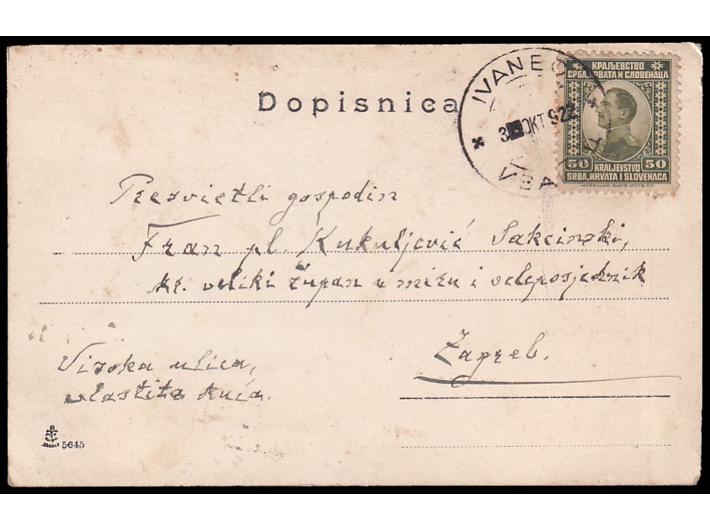 Dopisnica
IVANEC
3 OKT 922
КРАЉЕВСТВО
СРБА, ХРВАТА И СЛОВЕНАЦА
50 KRALJEVSTVO 50
SRBA, HRVATA I SLOVENACA
AMERICAN BANK NOTE CO.
Presvietli gospodin
Fran pl. Kukuljević Sakcinski,
kr. veliki župan u miru i veleposjednik
Zagreb.
Visoka ulica,
vlastita kuća.
5645